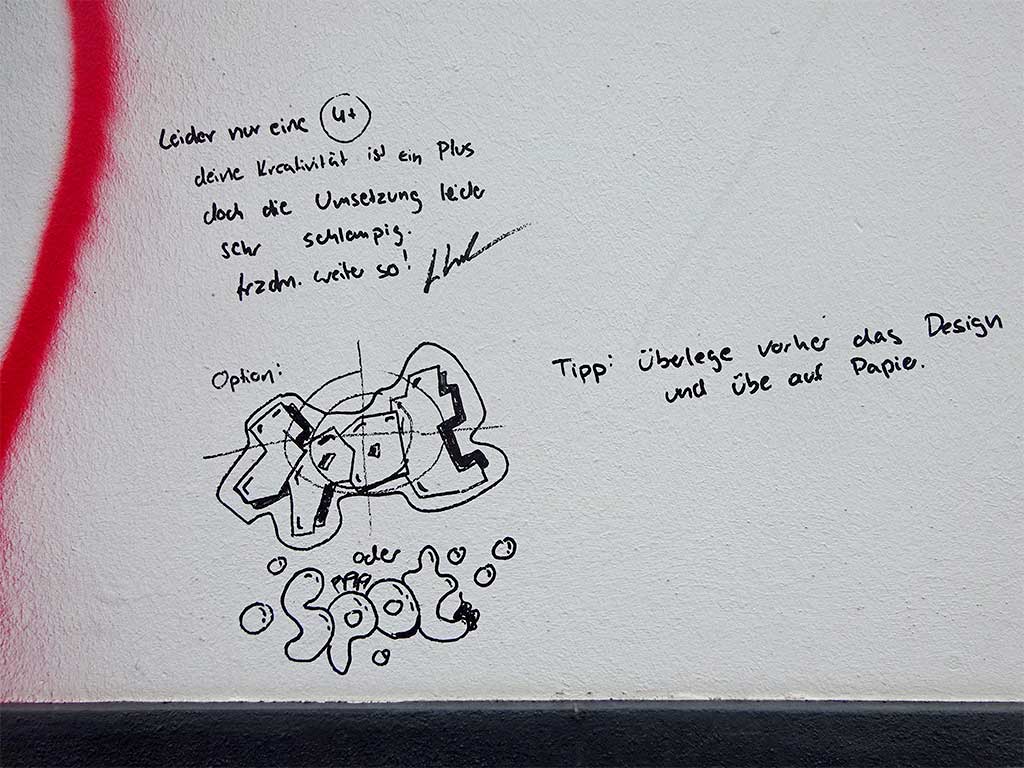 Leider nur eine 4+
deine Kreativität ist ein Plus
doch die Umsetzung leider
sehr schlampig.
trzdm. weiter so!
Option:
Tipp: überlege vorher das Design
und übe auf Papier.
oder
Spot